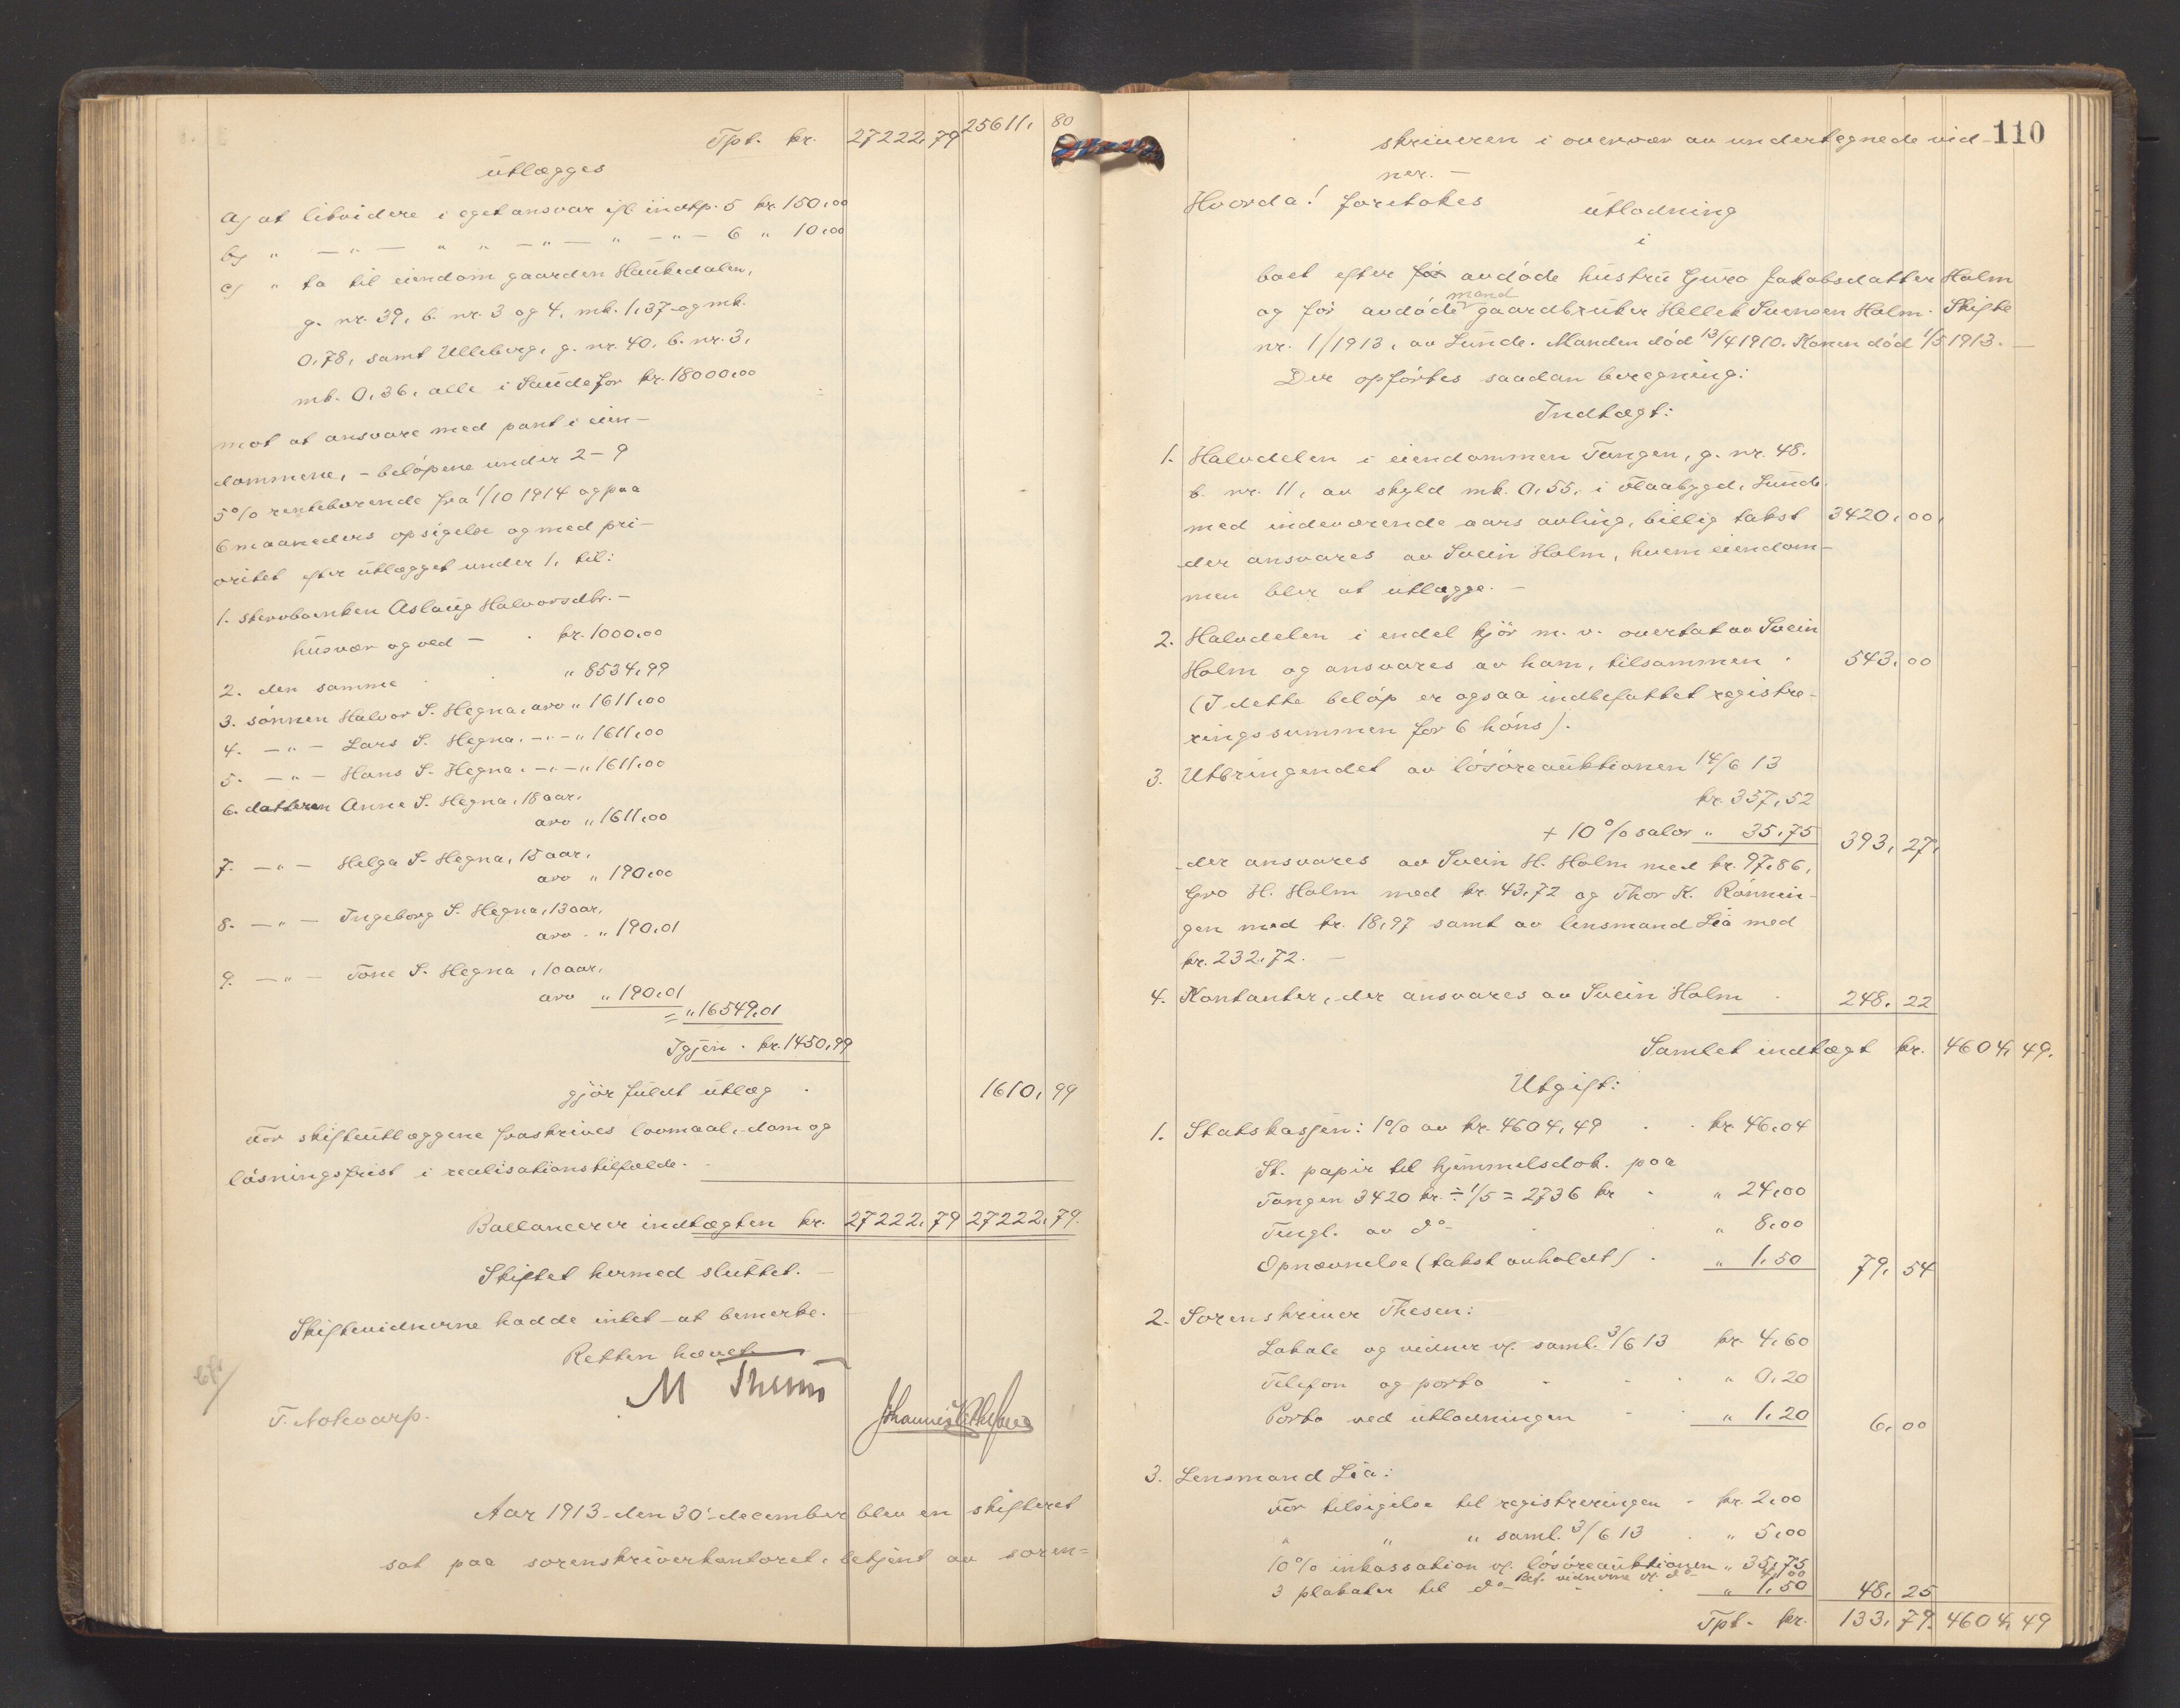 Tpt. kr. 27222,79 25611,80
utlægges
a) at likvidere i eget ansvar ifl. indtp. 5 kr. 150,00
b) " — " — " " — " — " — " — 6 " 10,00
c) " ta til eiendom gaarden Haukedalen,
g. nr. 39, b. nr. 3 og 4, mk. 1,37 og mk.
0,78, samt Ulleberg, g. nr. 40, b. nr. 3,
mk. 0,36, alle i Saude for kr. 18000,00
mot at ansvare med pant i eien-
dommene, - beløpene under 2-9
5% rentebærende fra 1/10 1914 og paa
6 maaneders opsigelse og med pri-
oritet efter utlægget under 1, til:
1. stervbo enken Aslaug Halvorsdtr. -
husvær og ved - . kr. 1000,00
2. den samme . . " 8534,99
3. sønnen Halvor S. Hegna, arv " 1611,00
4. — " — Lars S. Hegna. — " — " 1611,00
5. — " — Hans S. Hegna. — " — " 1611,00
6. datteren Anne S. Hegna, 18 aar,
arv " 1611,00
7. — " — Helga S. Hegna, 15 aar,
arv " 190,00
8. — " — Ingeborg S. Hegna, 13 aar,
arv . " 190,01
9. — " — Tone S. Hegna, 10 aar,
arv " 190,01
= " 16549,01
Igjen . kr. 1450,99
gjør fuldt utlæg . 1610,99
For skifteutlæggene fraskrives lovmaal, dom og
løsningsfrist i realisationstilfælde.
Ballancerer indtægten kr. 27222,79 27222,79.
Skiftet hermed sluttet. —
Skiftevidnerne hadde intet at bemerke.
Retten hævet
M Thesen
T. Nokvarp.
Aar 1913 den 30. december blev en skifteret
sat paa sorenskriverkontoret, betjent av soren=
110
skriveren i overvær av undertegnede vid-
ner. —
Hvorda! foretokes
utlodning
i
boet efter før avdøde hustru Guro Jakobsdatter Holm
og før avdøde mand gaardbruker Hellek Svensen Holm. Skifte
nr. 1/1913, av Lunde. Manden død 13/4 1910. Konen død 1/5 1913. —
Der opførtes saadan beregning:
Indtægt:
1. Halvdelen i eiendommen Tangen, g. nr. 48.
b. nr. 11, av skyld mk. 0,55, i Flaabygd, Lunde,
med indeværende aars avling, billig takst 3420,00,
der ansvares av Svein Holm, hvem eiendom-
men blir at utlægge. —
2. Halvdelen i endel kjør m. v. overtat av Svein
Holm og ansvares av ham, tilsammen . 543,00
(I dette beløp er ogsaa indbefattet registre-
ringssummen for 6 høns).
3. Utbringendet av løsøreauktionen 14/6 13
kr. 357,52
+ 10% salær " 35,75 393,27,
der ansvares av Svein H. Holm med kr. 97,86,
Gro H. Holm med kr. 43,72 og Thor K. Rønnin-
gen med kr. 18,97 samt av lensmand Lia med
kr. 232,72. —
4. Kontanter, der ansvares av Svein Holm . 248,22
Samlet indtægt kr. 4604,49.
Utgift:
1. Statskassen: 1% av kr. 4604,49 . . kr. 46,04
St. papir til hjemmelsdok. paa
Tangen 3420 kr. ÷ 1/5 = 2736 kr . " 24,00
Tingl. av do . . " 8,00
Opnævnelse (takst avholdt) . " 1,50 79,54
2. Sorenskriver Thesen:
Lokale og vidner v. saml. 3/6 13 kr. 4,60
Telefon og porto . . . " 0,20
Porto ved utlodningen . . " 1,20 6,00
3. Lensmand Lia:
For tilsigelse til registreringen . kr. 2,00
" " " saml. 3/6 13 . " 5,00
10% inkassation v. løsøreauktionen " 35,75
Bet. vidnerne v. do 4,00
3 plakater til do . . " 1,50 48,25
Tpt. kr. 133,79. 4604,49